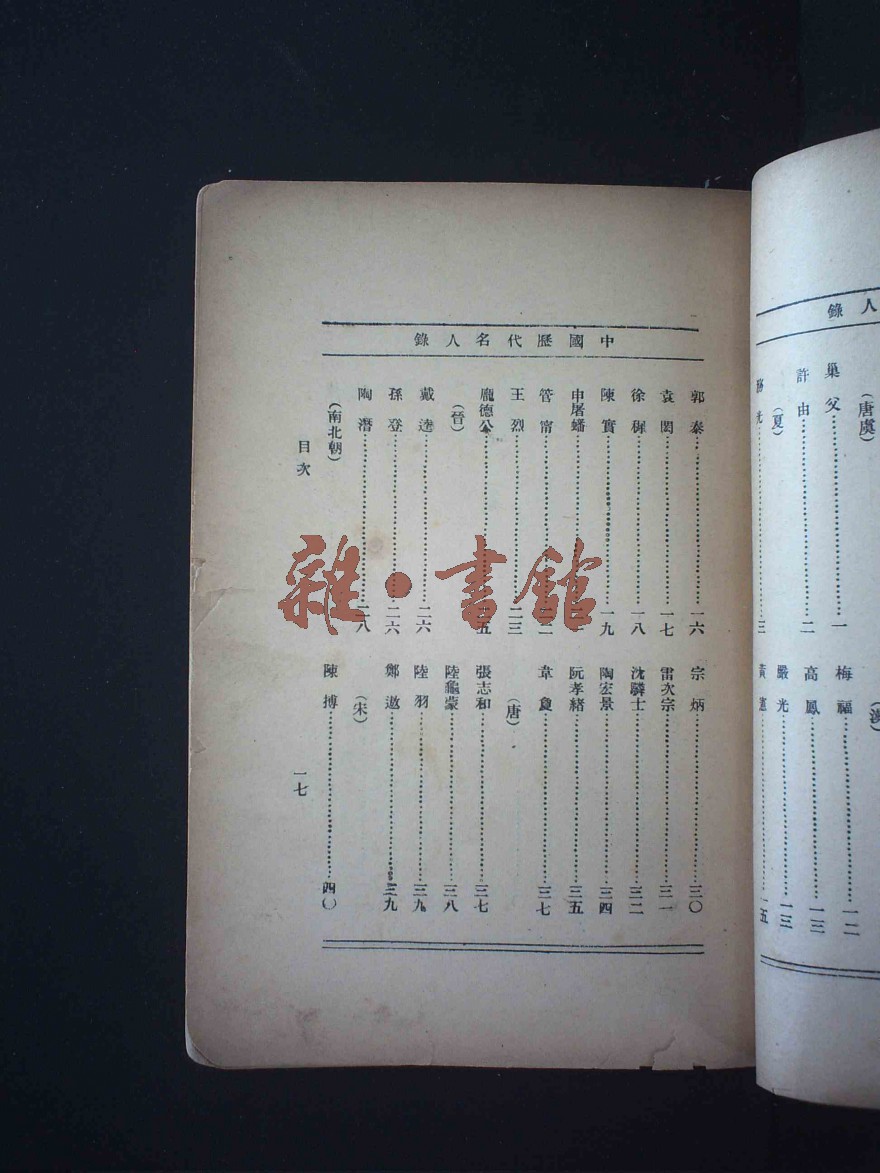 人錄
(唐虞)
巢父……一
許由……二
(夏)
務光……三
(漢)
梅福……一二
高鳳……一三
嚴光……一三
黃憲……一五
中國歷代名人錄
郭泰……一六
袁閎……一七
徐穉……一八
陳實……一九
申屠蟠……
管甯……二二
王烈……二三
龐德公……二五
(晉)
戴逵……二六
孫登……二六
陶潛……二八
(南北朝)
宗炳……三〇
雷次宗……三一
沈驎士……三二
陶宏景……三四
阮孝緒……三五
韋敻……三七
(唐)
張志和……三七
陸龜蒙……三八
陸羽……三九
鄭遨……三九
(宋)
陳摶……四〇
目次
一七
雜·書館